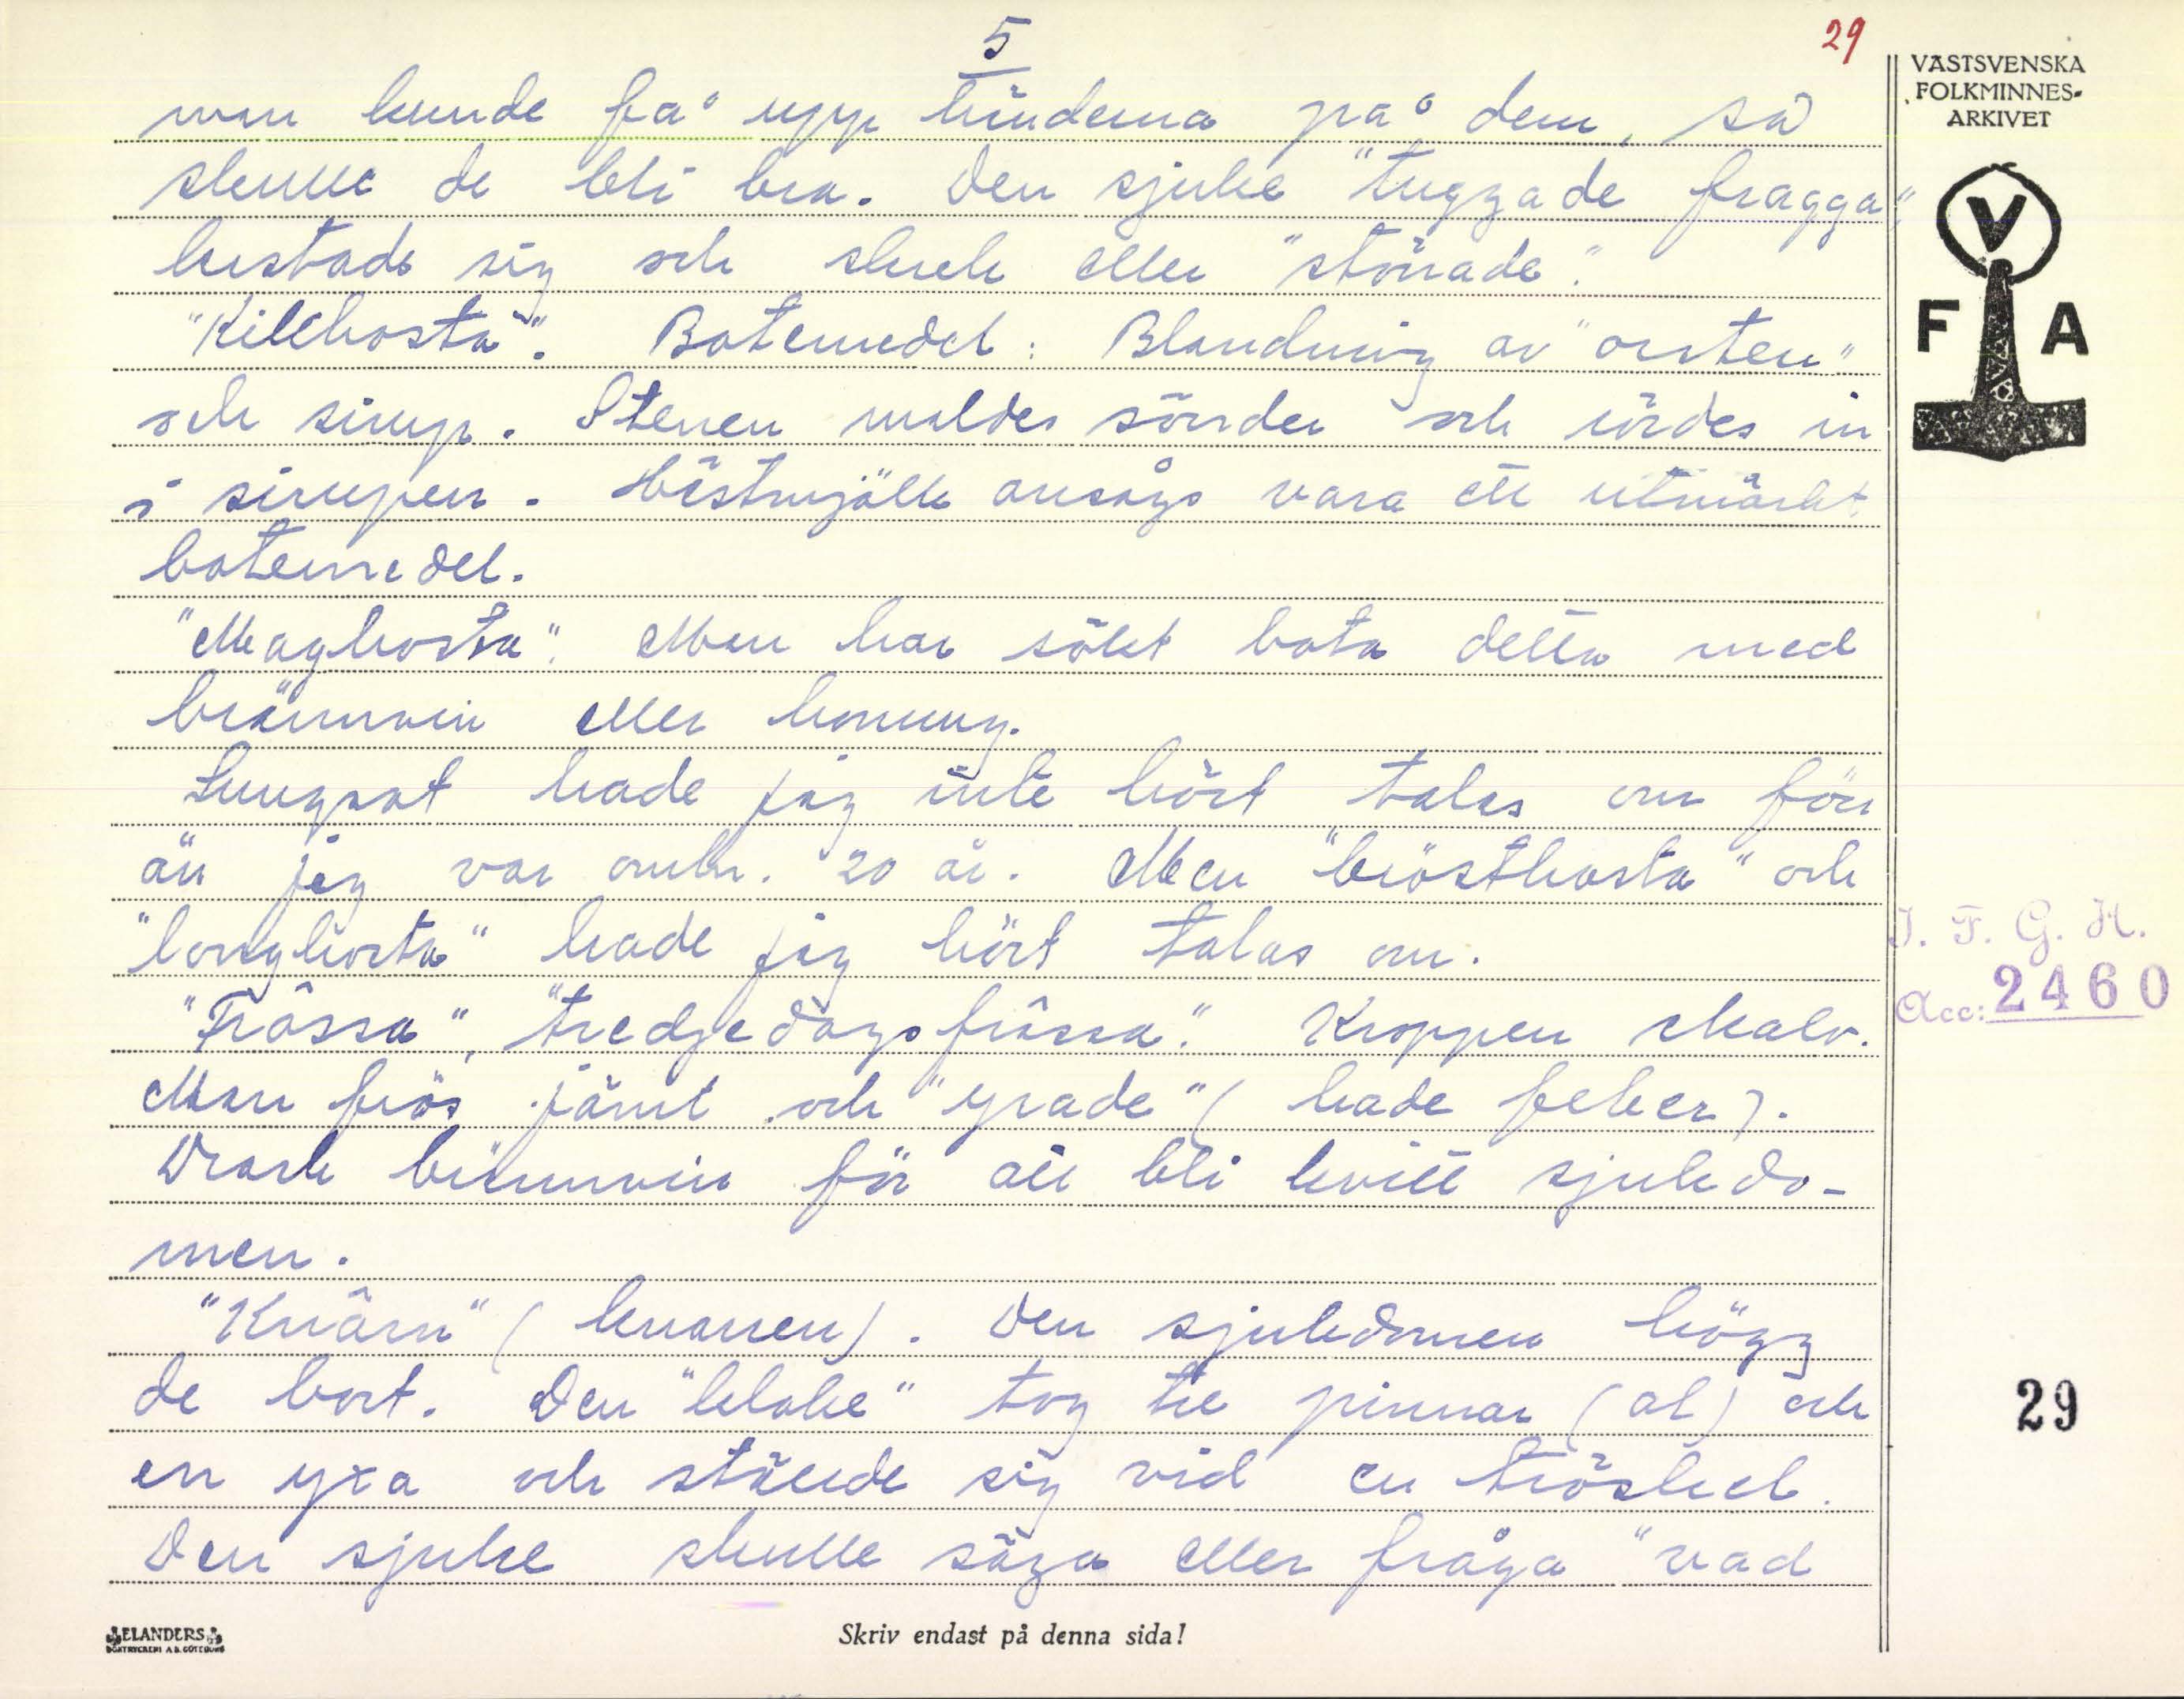 5
29
man kunde få upp händerna på dem, så
skulle de bli bra. Den sjuke "tuggade fragga",
kastade sig och skrek eller "stönade".
"Kikhosta". Botemedel: Blandning av "orsten"
och sirup. Stenen maldes sönder och rördes in
i sirupen. Hästmjölk ansågs vara ett utmärkt
botemedel.
"Maghosta". Man har sökt bota detta med
brännvin eller honung.
Lungsot hade jag inte hört talas om förr
än jag var omkr. 20 år. Men "brösthosta" och
"longhosta" hade jag hört talas om.
"Fråssa", "tredjedagsfråssa". Kroppen skalv.
Man frös jämt och "yrade" (hade feber).
Drack brännvin för att bli kvitt sjukdo-
men.
"Knärn" (knarren). Den sjukdomen högg
de bort. Den "kloke" tog tre pinnar (al) och
en yxa och ställde sig vid en tröskel.
Den sjuke skulle säga eller fråga "vad
VÄSTSVENSKA
FOLKMINNES-
ARKIVET
V
F A
I. F. G. H.
Acc: 2460
29
ELANDERS
BOKTRYCKERI A.B. GÖTEBORG
Skriv endast på denna sida!